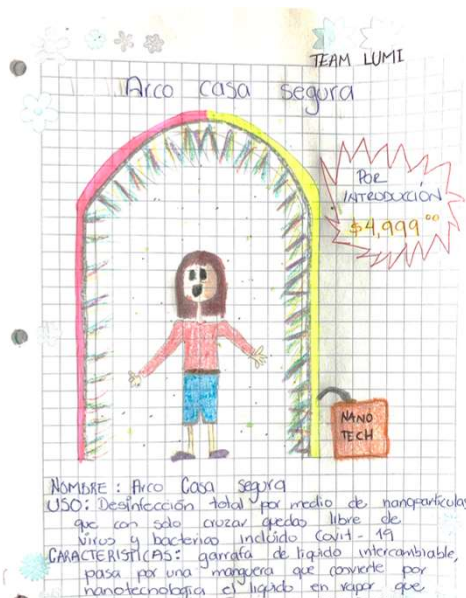 TEAM LUMI
Arco casa segura
POR
INTRODUCCIÓN
$4,999.00
NANO
TECH
NOMBRE: Arco Casa segura
USO: Desinfección total por medio de nanopartículas
que con solo cruzar quedas libre de
virus y bacterias incluido Covit-19
CARACTERISTICAS: garrafa de liquido intercambiable,
pasa por una manguera que convierte por
nanotecnologia el liquido en vapor que